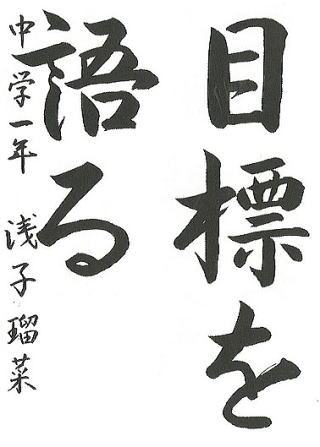 目標を
語る
中学一年 浅子瑠菜